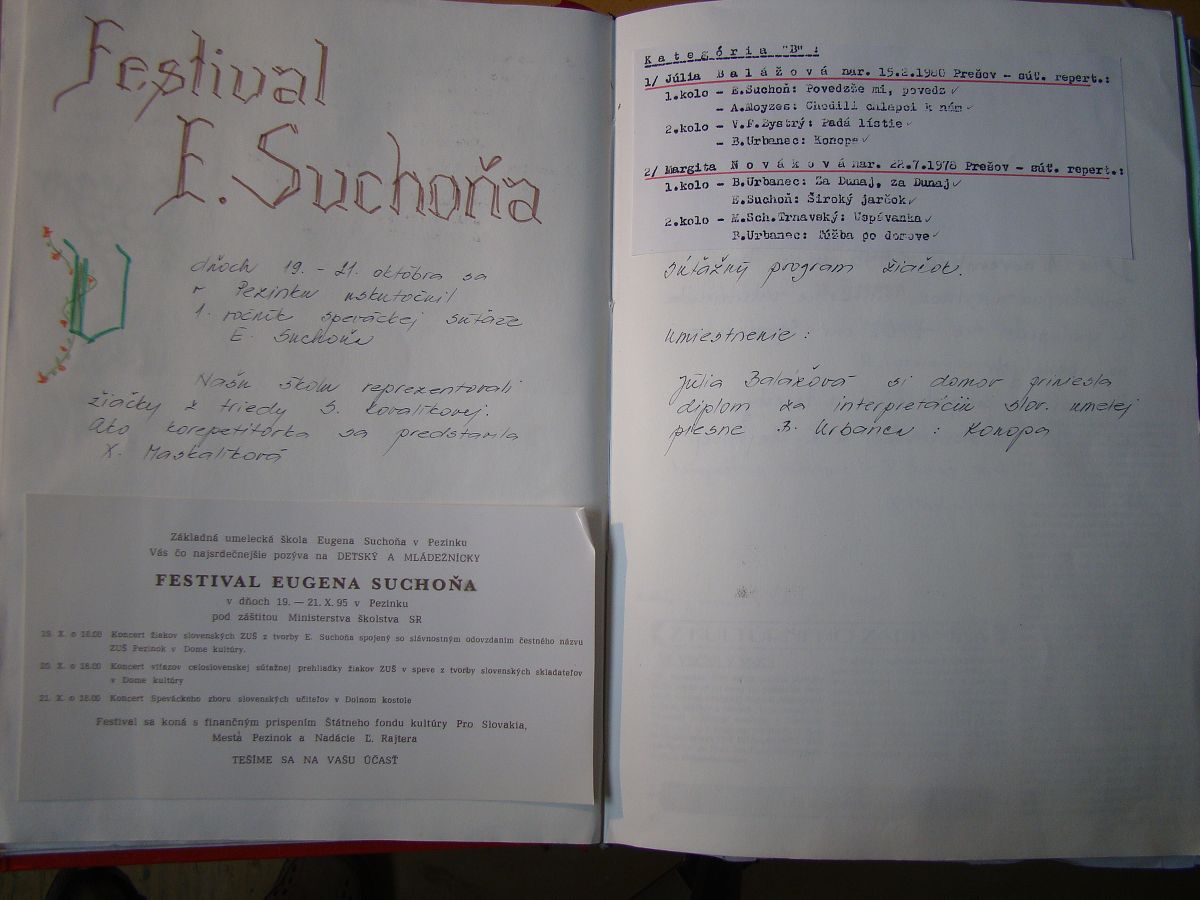 Festival
E. Suchoňa
V dňoch 19. - 21. októbra sa
v Pezinku uskutočnil
1. ročník speváckej súťaže
E. Suchoňa
Našu školu reprezentovali
žiačky z triedy S. Kovalíkovej.
Ako korepetítorka sa predstavila
X. Maskalíková
Základná umelecká škola Eugena Suchoňa v Pezinku
Vás čo najsrdečnejšie pozýva na DETSKÝ A MLÁDEŽNÍCKY
FESTIVAL EUGENA SUCHOŇA
v dňoch 19. — 21. X. 95 v Pezinku
pod záštitou Ministerstva školstva SR
19. X. o 16.00 Koncert žiakov slovenských ZUŠ z tvorby E. Suchoňa spojený so slávnostným odovzdaním čestného názvu
ZUŠ Pezinok v Dome kultúry.
20. X. o 16.00 Koncert víťazov celoslovenskej súťažnej prehliadky žiakov ZUŠ v speve z tvorby slovenských skladateľov
v Dome kultúry
21. X. o 16.00 Koncert Speváckeho zboru slovenských učiteľov v Dolnom kostole
Festival sa koná s finančným príspením Štátneho fondu kultúry Pro Slovakia,
Mesta Pezinok a Nadácie Ľ. Rajtera
TEŠÍME SA NA VAŠU ÚČASŤ
Kategória "B" :
1/ Júlia Balážová nar. 15.2.1980 Prešov - súť. repert.:
1.kolo - E.Suchoň: Povedzže mi, povedz
- A.Moyzes: Chodili chlapci k nám
2.kolo - V.F.Bystrý: Padá lístie
- B.Urbanec: Konopa
2/ Margita Nováková nar. 22.7.1978 Prešov - súť. repert.:
1.kolo - B.Urbanec: Za Dunaj, za Dunaj
E.Suchoň: Široký jarčok
2.kolo - M.Sch.Trnavský: Uspávanka
B.Urbanec: Túžba po domove
súťažný program žiačok.
Umiestnenie :
Júlia Balážová si domov priniesla
diplom za interpretáciu slov. umelej
piesne B. Urbanca : Konopa